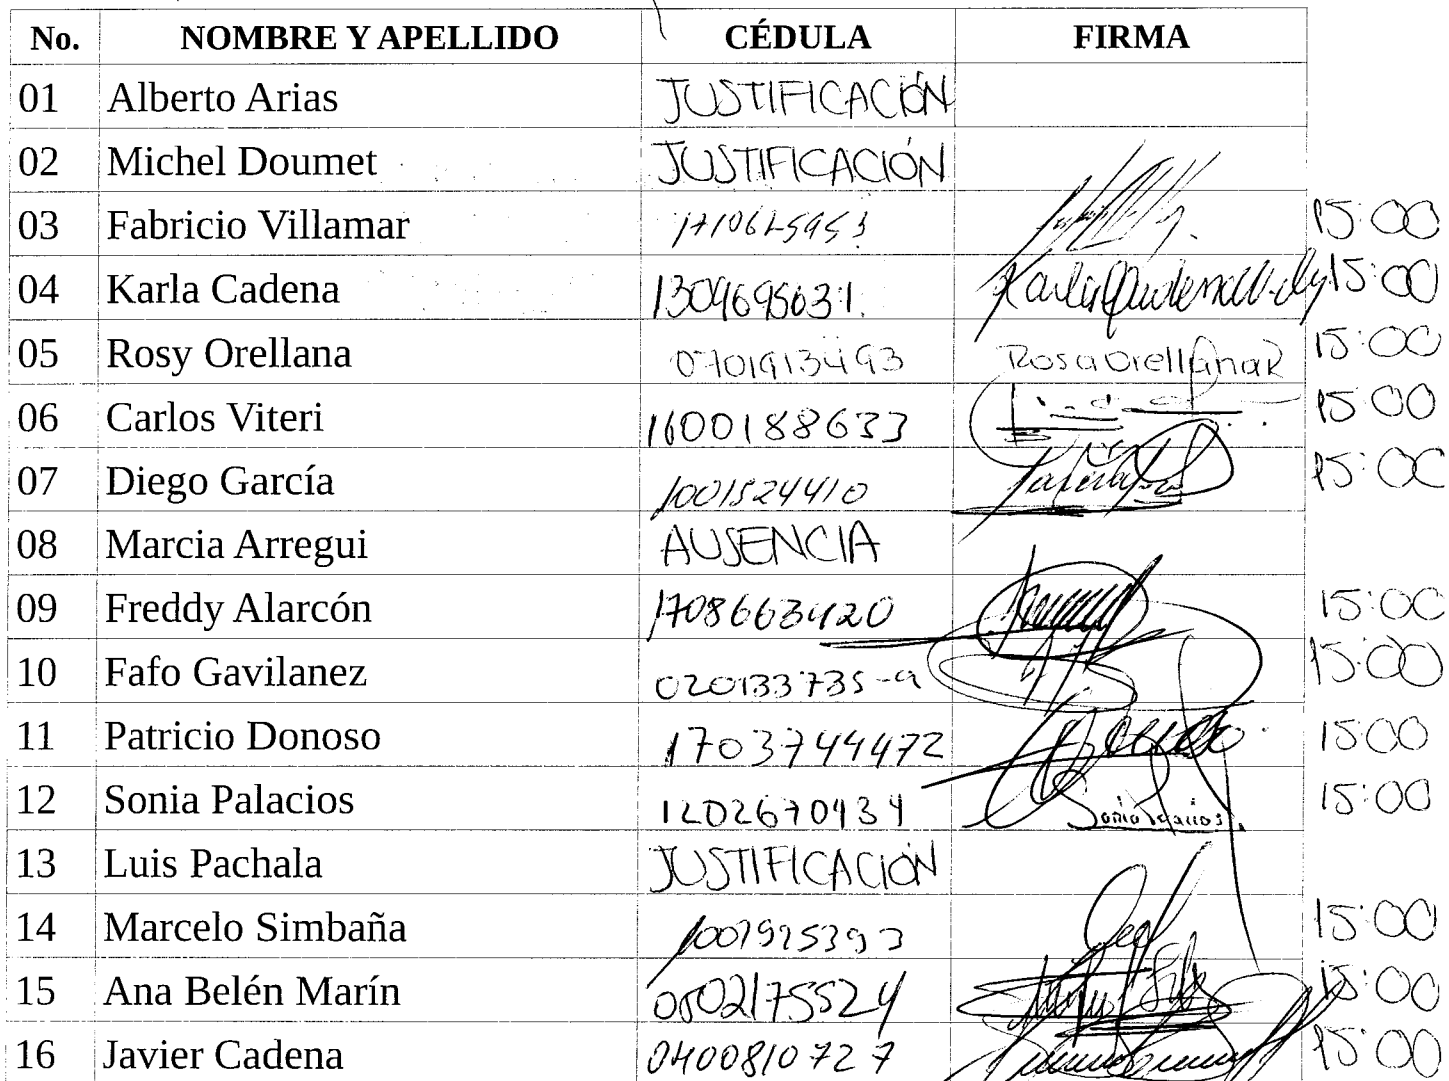 No. NOMBRE Y APELLIDO CÉDULA FIRMA
01 Alberto Arias JUSTIFICACIÓN
02 Michel Doumet JUSTIFICACIÓN
03 Fabricio Villamar 15:00
04 Karla Cadena 1309695631. 15:00
05 Rosy Orellana 0701913493 Rosa Orellana R 15:00
06 Carlos Viteri 1600188633 15:00
07 Diego García 1001524410 15:00
08 Marcia Arregui AUSENCIA
09 Freddy Alarcón 1708663420 15:00
10 Fafo Gavilanez 020133735-9 15:00
11 Patricio Donoso 1703744472 15:00
12 Sonia Palacios 1202670434 Sonia Palacios. 15:00
13 Luis Pachala JUSTIFICACIÓN
14 Marcelo Simbaña 15:00
15 Ana Belén Marín 0502175524 15:00
16 Javier Cadena 0400810727 15:00